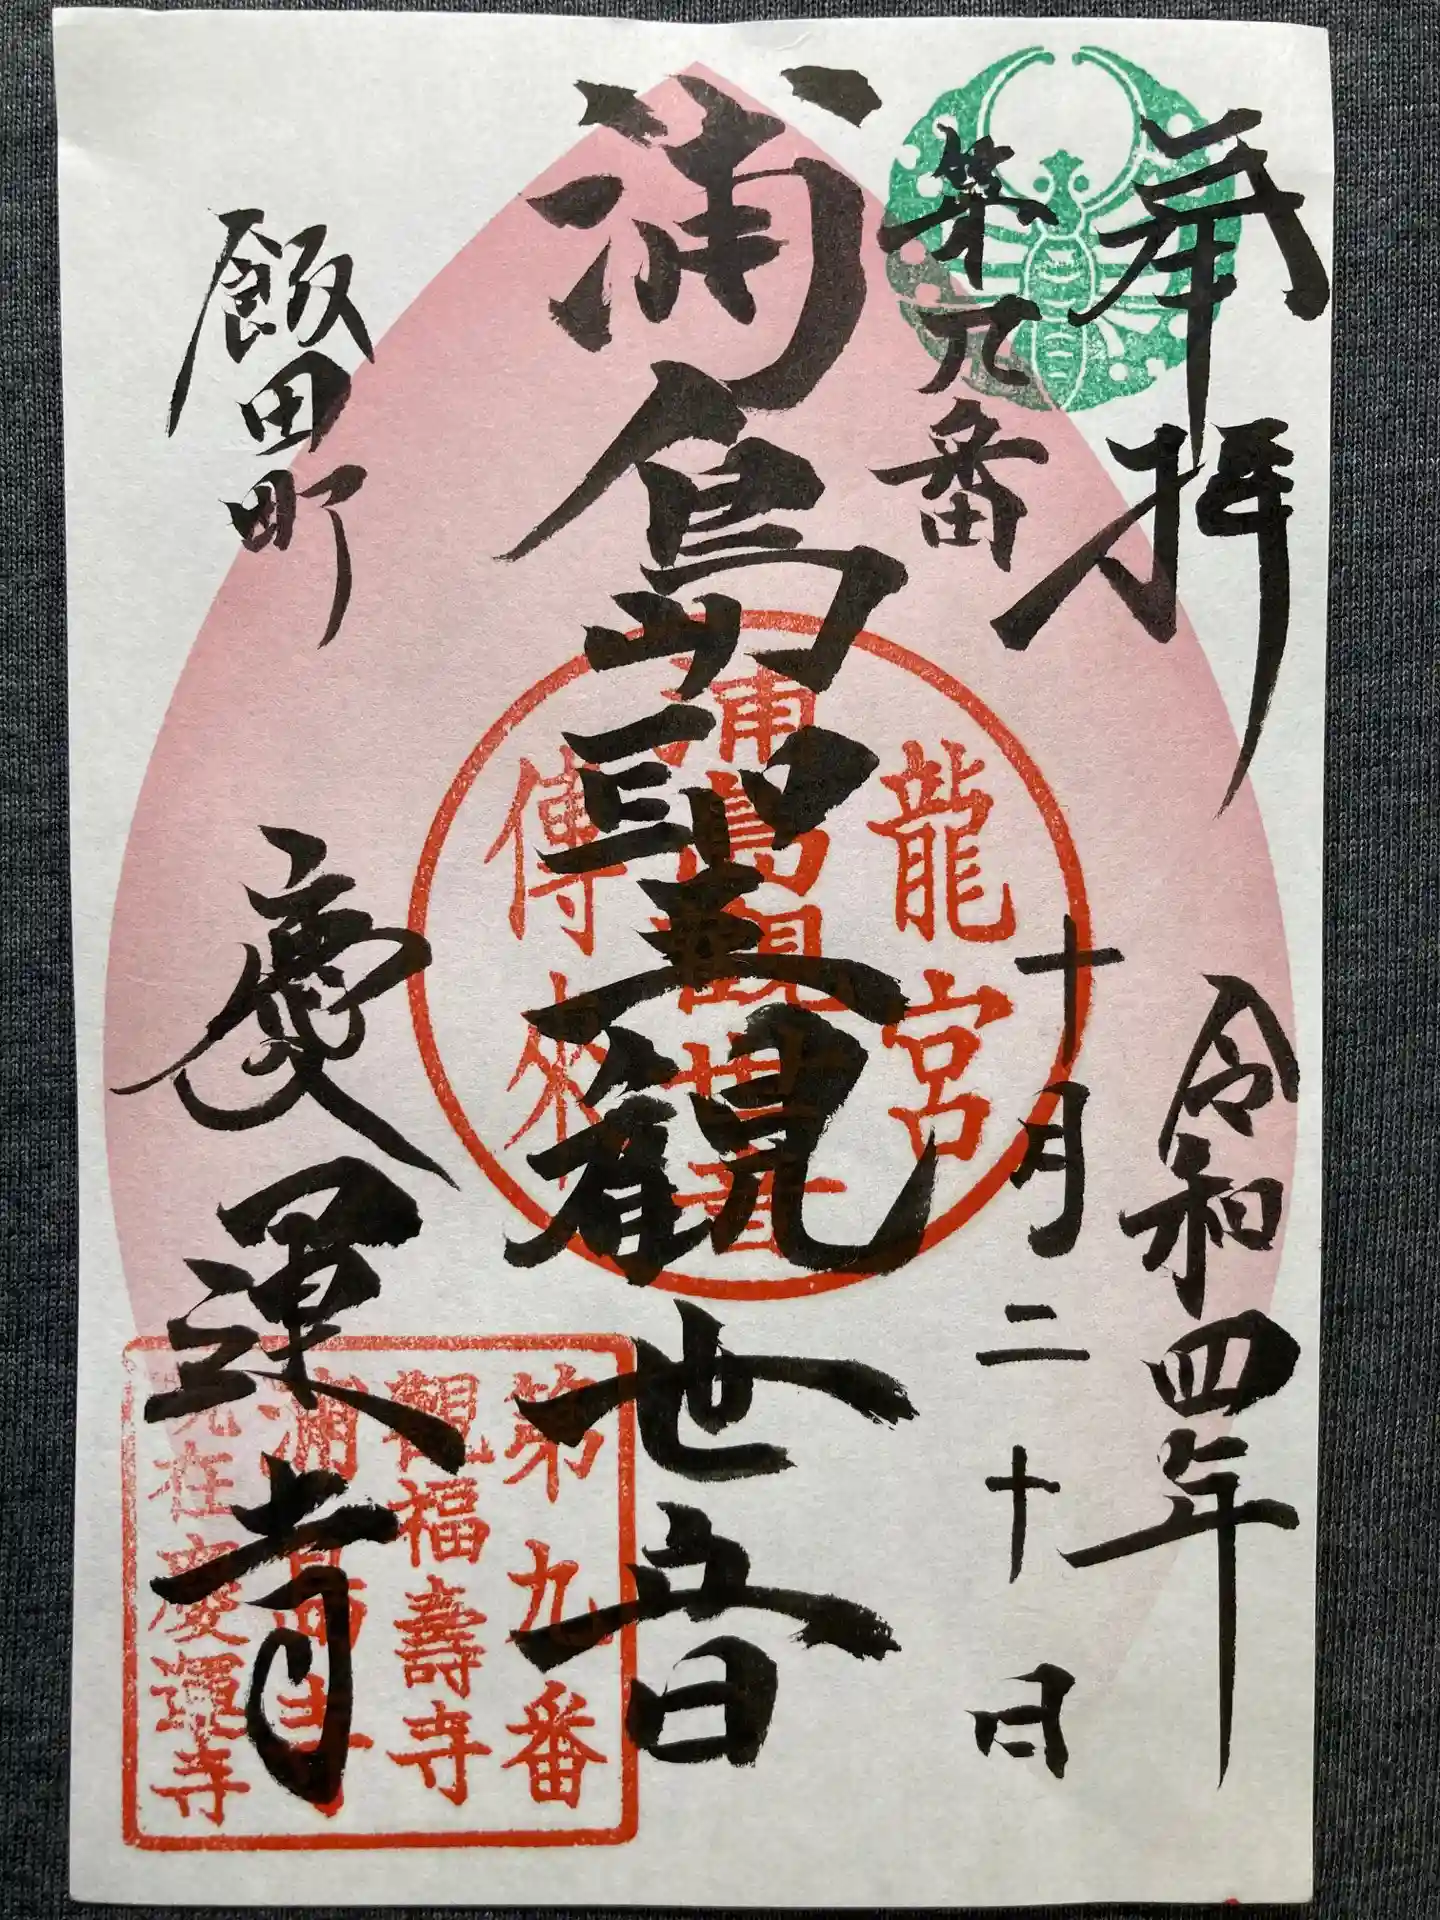 奉拝
令和四年
第九番
十月二十日
浦島聖観世音
飯田町
慶運寺
龍宮
浦島観世音
傳来
第九番
観福壽寺
現在慶運寺